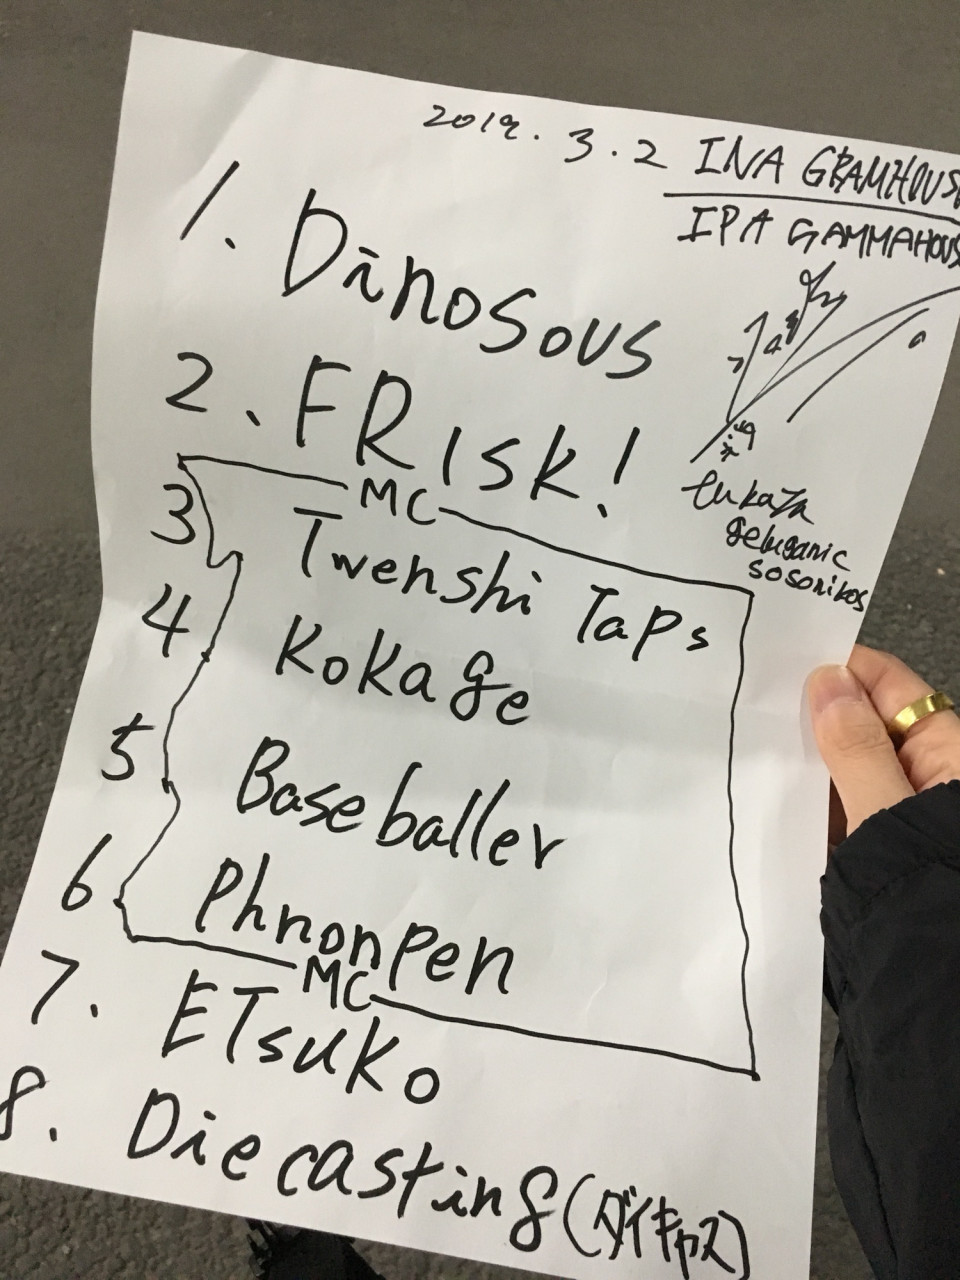 2019.3.2 INA GRAMHOUSE
IPA GAMMAHOUS
1. Dinosous
2. FRisk!
MC
3 Twenshi Taps
4 Kokage
5 Baseballer
6 Phnonpen
MC
7. ETsuko
8. Die casting (ダイキャス)
sosorikos